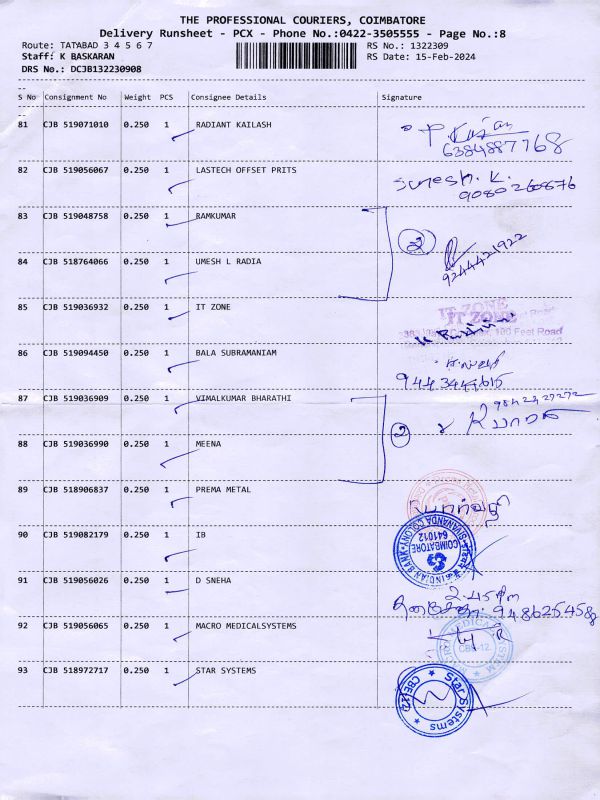 THE PROFESSIONAL COURIERS, COIMBATORE
Delivery Runsheet - PCX - Phone No.:0422-3505555 - Page No.:8
Route: TATABAD 3 4 5 6 7 RS No.: 1322309
Staff: K BASKARAN RS Date: 15-Feb-2024
DRS No.: DCJB132230908
S No Consignment No Weight PCS Consignee Details Signature
81 CJB 519071010 0.250 1 RADIANT KAILASH
6384887768
82 CJB 519056067 0.250 1 LASTECH OFFSET PRITS Sumesh. K.
9080260876
83 CJB 519048758 0.250 1 RAMKUMAR
2
9244421922
84 CJB 518764066 0.250 1 UMESH L RADIA
85 CJB 519036932 0.250 1 IT ZONE IT ZONE
100 Feet Road
86 CJB 519094450 0.250 1 BALA SUBRAMANIAM
87 CJB 519036909 0.250 1 VIMALKUMAR BHARATHI
2
88 CJB 519036990 0.250 1 MEENA
89 CJB 518906837 0.250 1 PREMA METAL
90 CJB 519082179 0.250 1 IB INDIAN BANK SIVANANDA COLONY COIMBATORE 641012
91 CJB 519056026 0.250 1 D SNEHA 2.45 Pm
92 CJB 519056065 0.250 1 MACRO MEDICALSYSTEMS CBE-12
93 CJB 518972717 0.250 1 STAR SYSTEMS Star Systems CBE(12)